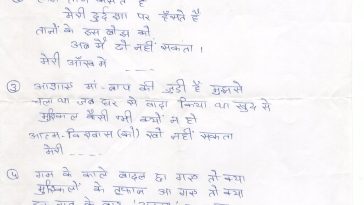 मेरी दुर्दशा पर हँसते है
तानों के इस बोझ को
अब मैं ढो नहीं सकता ।
मेरी आँख में
③ आशाएं मां-बाप की जुडी हैं मुझसे
चला था जब घर से वादा किया था खुद से
मुश्किल कैसी भी क्यों न हो
आत्म-विश्वास (को) खो नहीं सकता
मेरी
④ गम के काले बादल छा गए तो क्या
मुश्किलों के तूफान आ गए तो क्या